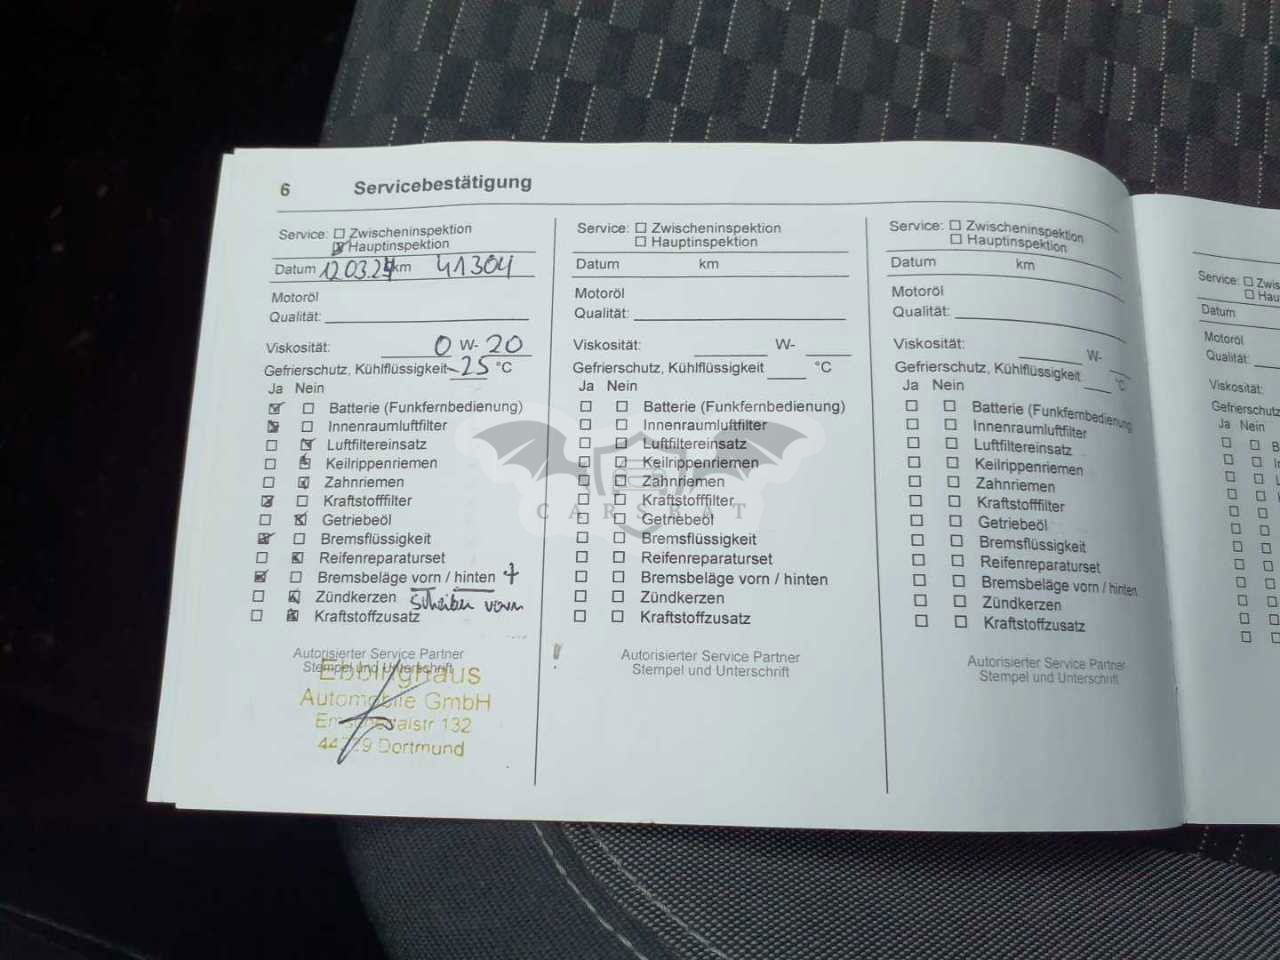 6 Servicebestätigung
Service: Zwischeninspektion
Hauptinspektion
Datum 12.03.24 km 41304
Motoröl
Qualität:
Viskosität: 0 W- 20
Gefrierschutz, Kühlflüssigkeit -25 °C
Ja Nein
Batterie (Funkfernbedienung)
Innenraumluftfilter
Luftfiltereinsatz
Keilrippenriemen
Zahnriemen
Kraftstofffilter
Getriebeöl
Bremsflüssigkeit
Reifenreparaturset
Bremsbeläge vorn / hinten +
Zündkerzen Scheiben vorn
Kraftstoffzusatz
Autorisierter Service Partner
Stempel und Unterschrift
Ebbinghaus
Automobile GmbH
132
Dortmund
Service: Zwischeninspektion
Hauptinspektion
Datum km
Motoröl
Qualität:
Viskosität: W-
Gefrierschutz, Kühlflüssigkeit °C
Ja Nein
Batterie (Funkfernbedienung)
Innenraumluftfilter
Luftfiltereinsatz
Keilrippenriemen
Zahnriemen
Kraftstofffilter
Getriebeöl
Bremsflüssigkeit
Reifenreparaturset
Bremsbeläge vorn / hinten
Zündkerzen
Kraftstoffzusatz
Autorisierter Service Partner
Stempel und Unterschrift
Service: Zwischeninspektion
Hauptinspektion
Datum km
Motoröl
Qualität:
Viskosität: W-
Gefrierschutz, Kühlflüssigkeit °C
Ja Nein
Batterie (Funkfernbedienung)
Innenraumluftfilter
Luftfiltereinsatz
Keilrippenriemen
Zahnriemen
Kraftstofffilter
Getriebeöl
Bremsflüssigkeit
Reifenreparaturset
Bremsbeläge vorn / hinten
Zündkerzen
Kraftstoffzusatz
Autorisierter Service Partner
Stempel und Unterschrift
Service: Zwis
Hau
Datum
Motoröl
Qualität:
Viskosität:
Gefrierschutz
Ja Nein
CARSBAT